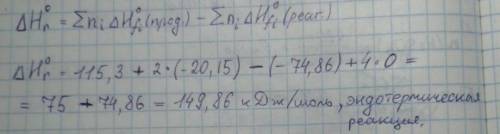 ΔHᵣ⁰ = Σnᵢ ΔH⁰fᵢ (прод) − Σnᵢ ΔH⁰fᵢ (реаг.)
ΔHᵣ⁰ = 115,3 + 2·(−20,15) − (−74,86) + 4·0 =
= 75 + 74,86 = 149,86 кДж/моль, эндотермическая
реакция.